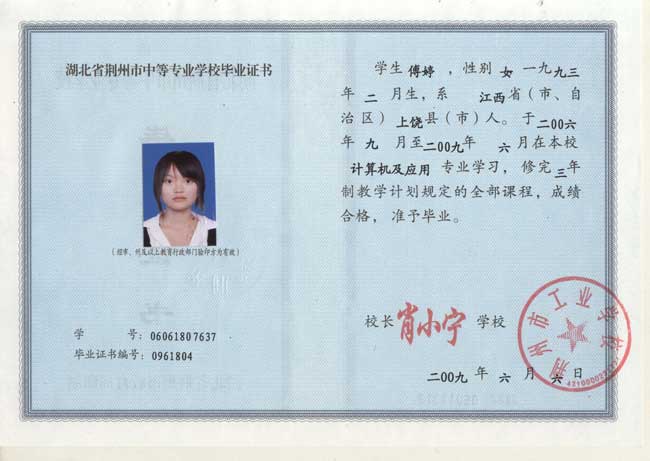 湖北省荆州市中等专业学校毕业证书
(经市、州及以上教育行政部门验印方为有效)
学 号: 06061807637
毕业证书编号: 0961804
学生 傅婷 ，性别 女 一九九三
年 二 月生，系 江西省（市、自
治区）上饶县（市）人。于二00六
年 九 月至二00九年 六 月在本校
计算机及应用 专业学习，修完 三年
制教学计划规定的全部课程，成绩
合格，准予毕业。
校长 肖小宁 学校
荆州市工业学校
二00九 年 六 月 六 日